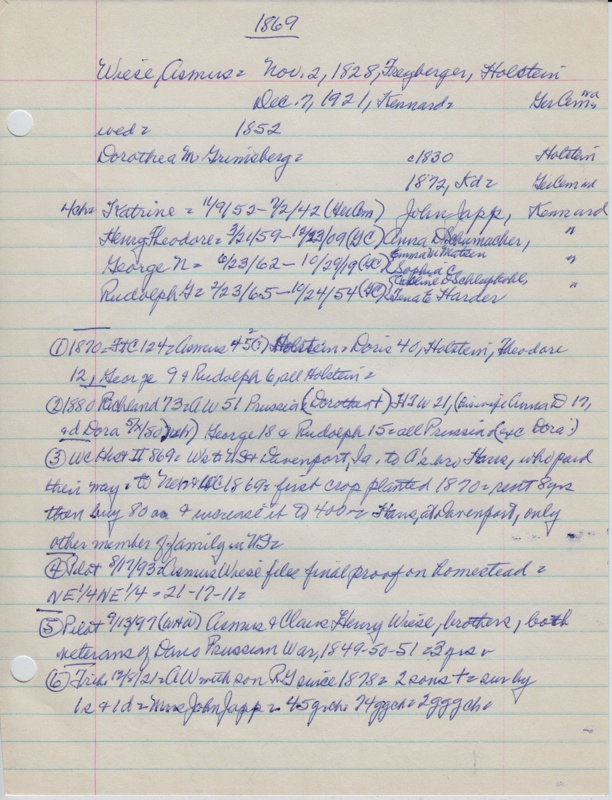 1869
Wiese, Asmus = Nov. 2, 1828, Freyberger, Holstein
Dec. 7, 1921, Kennard = GerCem WA
wed = 1852
Dorothea M Grimsberg = c1830 Holstein
1872, Kd = GerCem
4ch = Katrine = 11/9/53 - 7/2/42 (GerCem) John Japp, Kennard
Henry Theodore = 3/21/59 - 12/23/09 (GC) Anna D Schumacher, "
George N = 6/23/62 - 10/29/19 (GC) Emma W Matzen "
Sophia C
Rudolph G = 2/23/65 - 10/24/54 (GC) Caroline D Schlepkohl, "
Tena E Harder
① 1870 = FtC 124 = Asmus 42(?) Holstein = Doris 40, Holstein, Theodore
12, George 9 & Rudolph 6, all Holstein =
② 1880 Richland 73 = AW 51 Prussia (Dorothea +) HTW 21, (his wife Anna D 17,
& d Dora 5/80) George 18 & Rudolph 15 = all Prussia (exc Dora)
③ WC Hist II 869 = Wst US + Davenport, Ia. to A's bro Hans, who paid
their way = to Neb & WC 1869 = first crop planted 1870 = rent 8 yrs
then buy 80 a & increase it to 400 = Hans, at Davenport, only
other member of family in US =
④ Pilot 8/17/93 = Asmus Wiese files final proof on homestead =
NE 1/4 NE 1/4 = 21-17-11 =
⑤ Pilot 9/13/97 Asmus & Claus Henry Wiese, brothers, both
veterans of Dano Prussian War, 1849-50-51 = 3 yrs
⑥ Trib 12/8/21 = AW with son RG since 1878 = 2 sons + = sur by
1s & 1d = Mrs John Japp = 45 grch 74 ggch = 2 gggch =